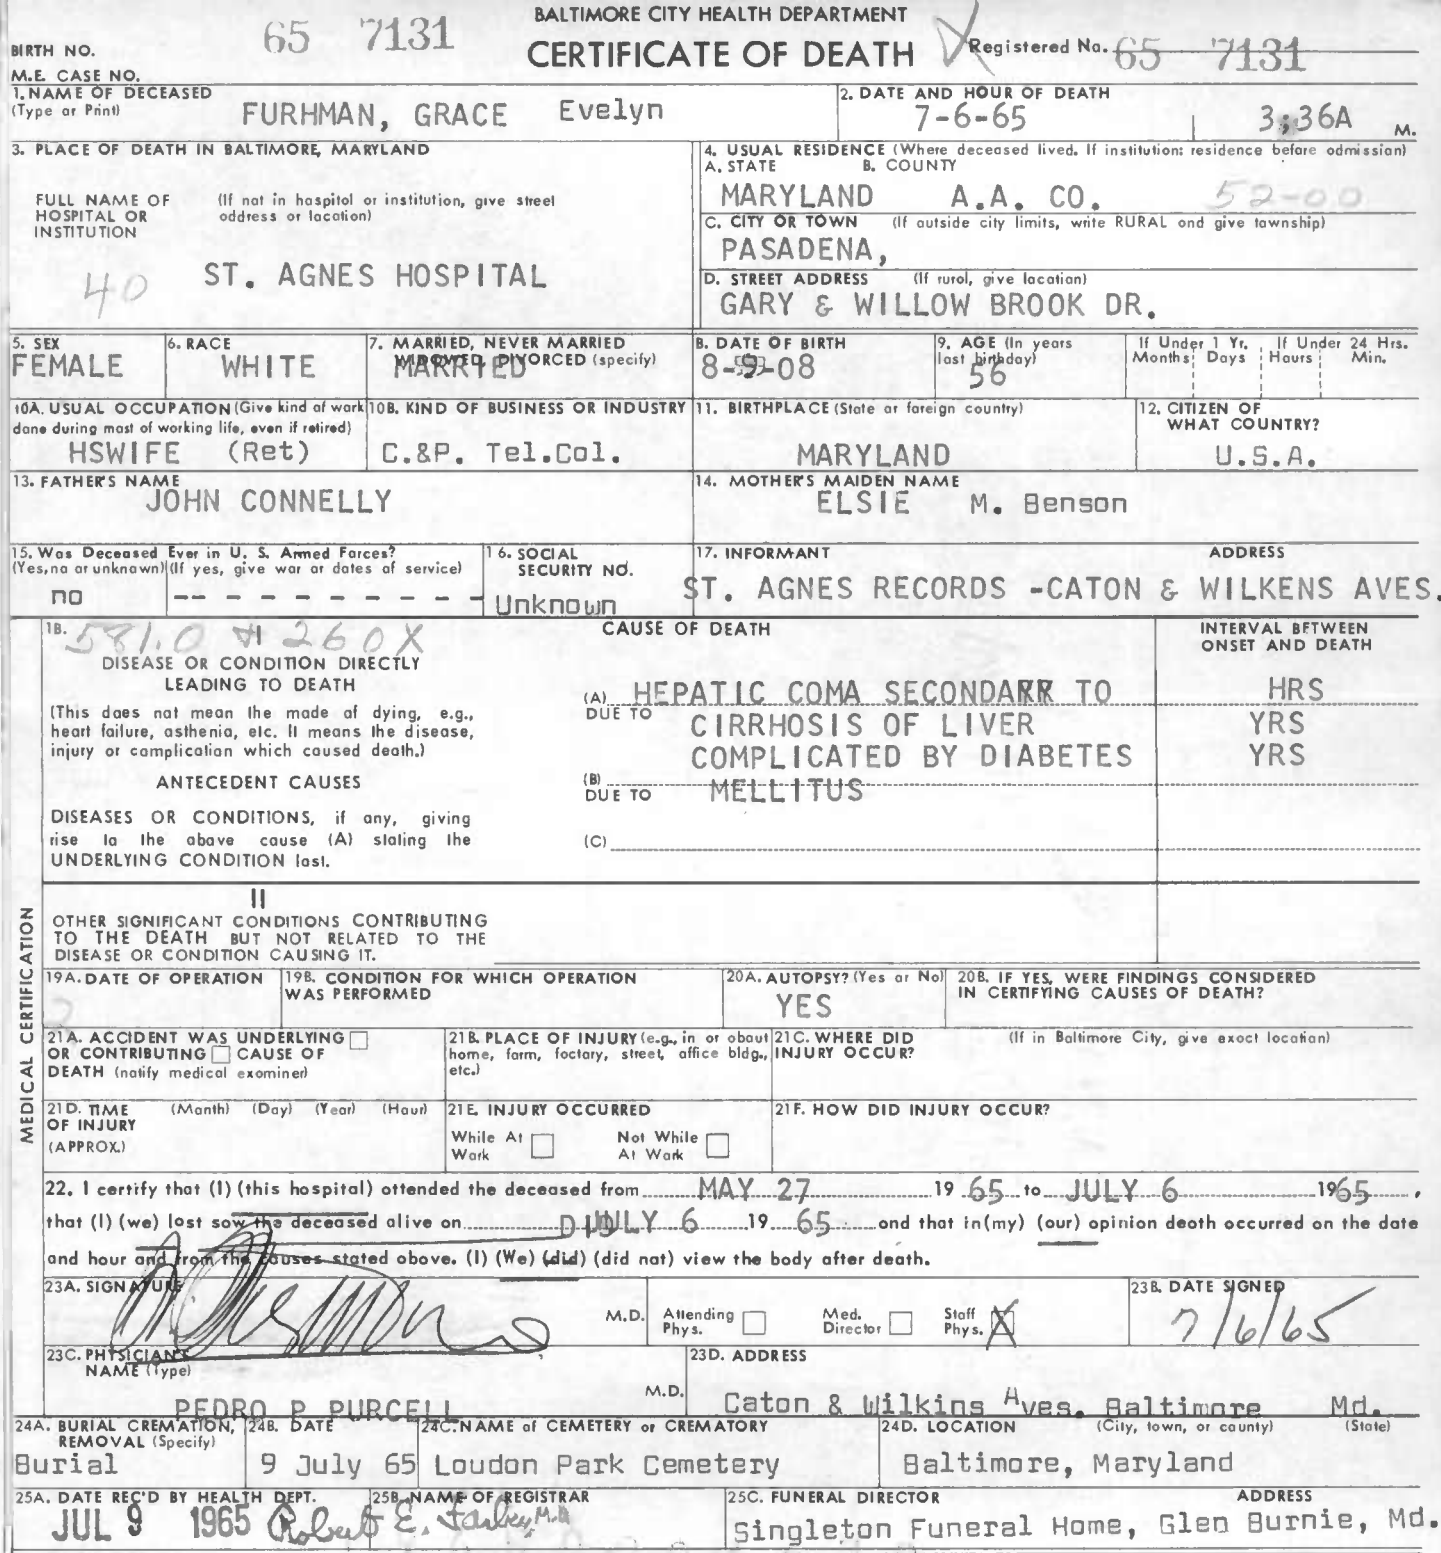 BALTIMORE CITY HEALTH DEPARTMENT
BIRTH NO. 65 7131 CERTIFICATE OF DEATH Registered No. 65 7131
M.E. CASE NO.
1. NAME OF DECEASED
(Type or Print) FURHMAN, GRACE Evelyn
2. DATE AND HOUR OF DEATH
7-6-65 3:36A M.
3. PLACE OF DEATH IN BALTIMORE, MARYLAND
FULL NAME OF HOSPITAL OR INSTITUTION
(If not in hospital or institution, give street address or location)
40 ST. AGNES HOSPITAL
4. USUAL RESIDENCE (Where deceased lived. If institution: residence before admission)
A. STATE B. COUNTY
MARYLAND A.A. CO. 52-00
C. CITY OR TOWN (If outside city limits, write RURAL and give township)
PASADENA,
D. STREET ADDRESS (If rural, give location)
GARY & WILLOW BROOK DR.
5. SEX
FEMALE
6. RACE
WHITE
7. MARRIED, NEVER MARRIED
WIDOWED, DIVORCED (specify)
MARRIED
8. DATE OF BIRTH
8-9-08
9. AGE (In years last birthday)
56
If Under 1 Yr. If Under 24 Hrs.
Months Days Hours Min.
10A. USUAL OCCUPATION (Give kind of work
done during most of working life, even if retired)
HSWIFE (Ret)
10B. KIND OF BUSINESS OR INDUSTRY
C.&P. Tel.Col.
11. BIRTHPLACE (State or foreign country)
MARYLAND
12. CITIZEN OF
WHAT COUNTRY?
U.S.A.
13. FATHER'S NAME
JOHN CONNELLY
14. MOTHER'S MAIDEN NAME
ELSIE M. Benson
15. Was Deceased Ever in U. S. Armed Forces?
(Yes, no or unknown) (If yes, give war or dates of service)
no -- - - - - - - - -
16. SOCIAL
SECURITY NO.
Unknown
17. INFORMANT ADDRESS
ST. AGNES RECORDS -CATON & WILKENS AVES.
MEDICAL CERTIFICATION
18. 581.0 260X
CAUSE OF DEATH
INTERVAL BETWEEN
ONSET AND DEATH
DISEASE OR CONDITION DIRECTLY
LEADING TO DEATH
(This does not mean the mode of dying, e.g.,
heart failure, asthenia, etc. It means the disease,
injury or complication which caused death.)
ANTECEDENT CAUSES
DISEASES OR CONDITIONS, if any, giving
rise to the above cause (A) stating the
UNDERLYING CONDITION last.
(A) HEPATIC COMA SECONDARR TO HRS
DUE TO CIRRHOSIS OF LIVER YRS
COMPLICATED BY DIABETES YRS
(B)
DUE TO MELLITUS
(C)
II
OTHER SIGNIFICANT CONDITIONS CONTRIBUTING
TO THE DEATH BUT NOT RELATED TO THE
DISEASE OR CONDITION CAUSING IT.
19A. DATE OF OPERATION
19B. CONDITION FOR WHICH OPERATION
WAS PERFORMED
20A. AUTOPSY? (Yes or No)
YES
20B. IF YES, WERE FINDINGS CONSIDERED
IN CERTIFYING CAUSES OF DEATH?
21A. ACCIDENT WAS UNDERLYING
OR CONTRIBUTING CAUSE OF
DEATH (notify medical examiner)
21B. PLACE OF INJURY (e.g., in or about
home, farm, factory, street, office bldg.,
etc.)
21C. WHERE DID (If in Baltimore City, give exact location)
INJURY OCCUR?
21D. TIME (Month) (Day) (Year) (Hour)
OF INJURY
(APPROX.)
21E. INJURY OCCURRED
While At Work Not While At Work
21F. HOW DID INJURY OCCUR?
22. I certify that (I) (this hospital) attended the deceased from MAY 27 19 65 to JULY 6 1965,
that (I) (we) last saw the deceased alive on JULY 6 19 65 and that in (my) (our) opinion death occurred on the date
and hour and from the causes stated above. (I) (We) (did) (did not) view the body after death.
23A. SIGNATURE
M.D. Attending Phys. Med. Director Staff Phys. X
23B. DATE SIGNED
7/6/65
23C. PHYSICIAN'S
NAME (Type)
PEDRO P. PURCELL M.D.
23D. ADDRESS
Caton & Wilkins Aves. Baltimore Md.
24A. BURIAL CREMATION,
REMOVAL (Specify)
Burial
24B. DATE
9 July 65
24C. NAME of CEMETERY or CREMATORY
Loudon Park Cemetery
24D. LOCATION (City, town, or county) (State)
Baltimore, Maryland
25A. DATE REC'D BY HEALTH DEPT.
JUL 9 1965
25B. NAME OF REGISTRAR
Robert E. Farber, M.D.
25C. FUNERAL DIRECTOR ADDRESS
Singleton Funeral Home, Glen Burnie, Md.